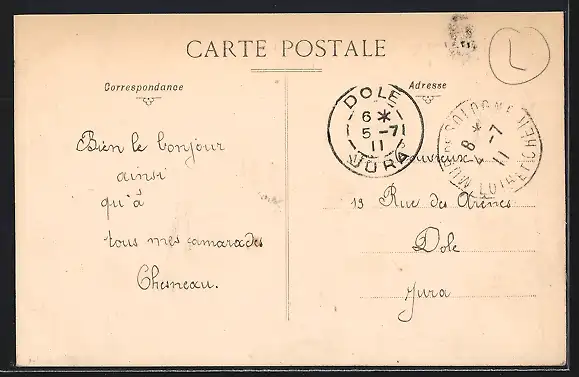 CARTE POSTALE
Correspondance
Adresse
L
DOLE
6 *
5 -7
11
JURA
SOLOGNE
8 *
4 -7
11
LOIR-ET-CHER
Bien le bonjour
ainsi
qu'à
tous mes camarades
Chesneau.
13 Rue des Arènes
Dole
Jura